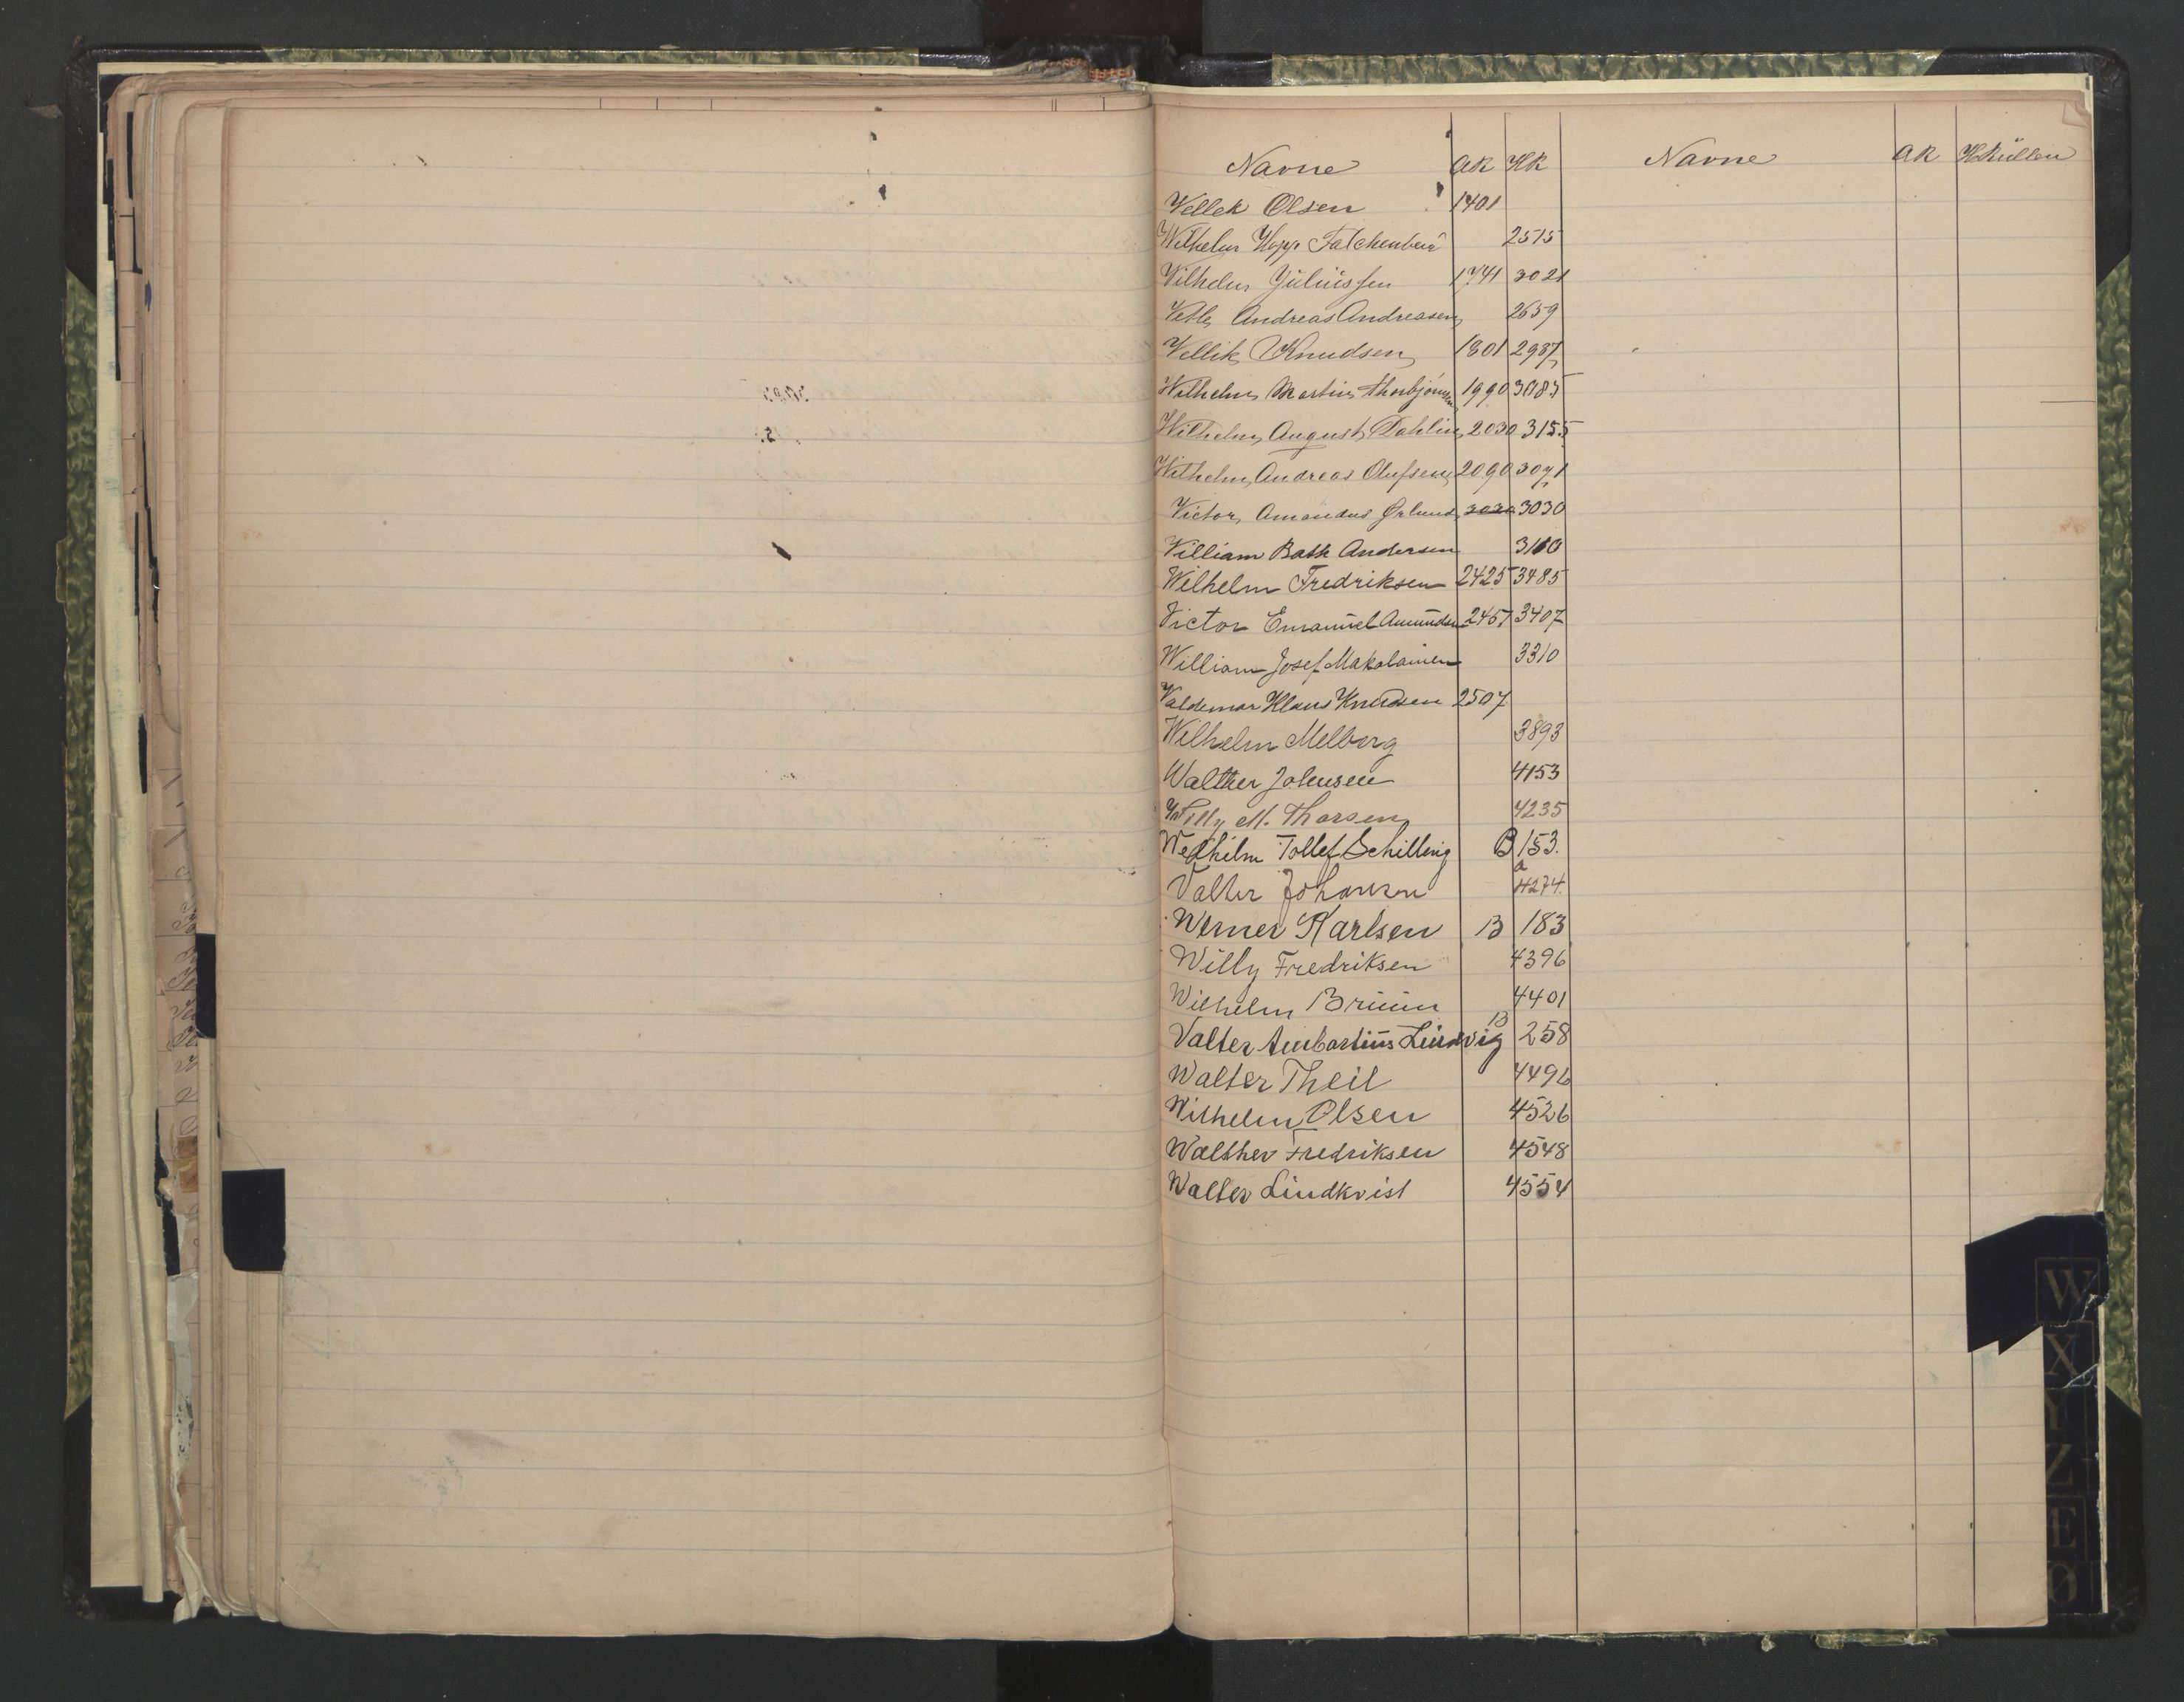 Navne AR HR Navne AR HRullen
Vellek Olsen 1401
Wilhelm Hopp Falchenberg 2515
Vilhelm Juliussen 1741 3021
Vetle Andreas Andreasen 2659
Vellik Knudsen 1801 2987
Wilhelm Martin Thorbjörnsen 1990 3185
Wilhelm August Dahlin 2030 3155
Wilhelm Andreas Olufsen 2090 3071
Victor Amandus 3030 3030
William Bath Andersen 3110
Wilhelm Fredriksen 2425 3485
Victor Emanuel Amundsen 2457 3407
William Josef Makalainen 3310
Valdemar Klaus Knudsen 2507
Wilhelm Melberg 3893
Walther Johnsen 4153
Willy M. Thorsen 4235
Wedhilm Tollef Schilling B 153.
Valter Johansen a 4274.
Werner Karlsen B 183
Willy Fredriksen 4396
Wilhelm Bruun 4401
Valter Lindvig B 258
Walter Theil 4496
Wilhelm Olsen 4526
Walther Fredriksen 4548
Walter Lindkvist 4554
W
X
Y
Z
Æ
Ø